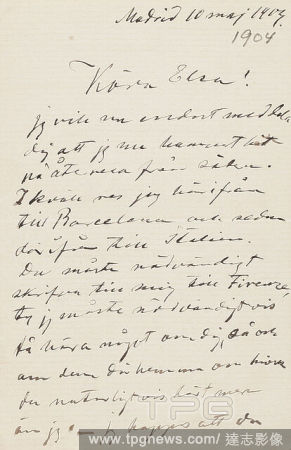 Madrid 10 maj 1904
1904
Kära Elsa!
jag vill nu endast meddela
dig att jag nu kommit
på åter resa från
I kväll res jag härifrån
till Barcelona och sedan
därifrån till Italien.
Du måste nödvändigt
skrifva till mig till Firenze,
ty jag måste nödvändigtvis
få höra något om dig, så och
om dem där hemma om hvilka
du naturligtvis hört mer
än jag hoppas att du
TPG
www.tpgnews.com 達志影像